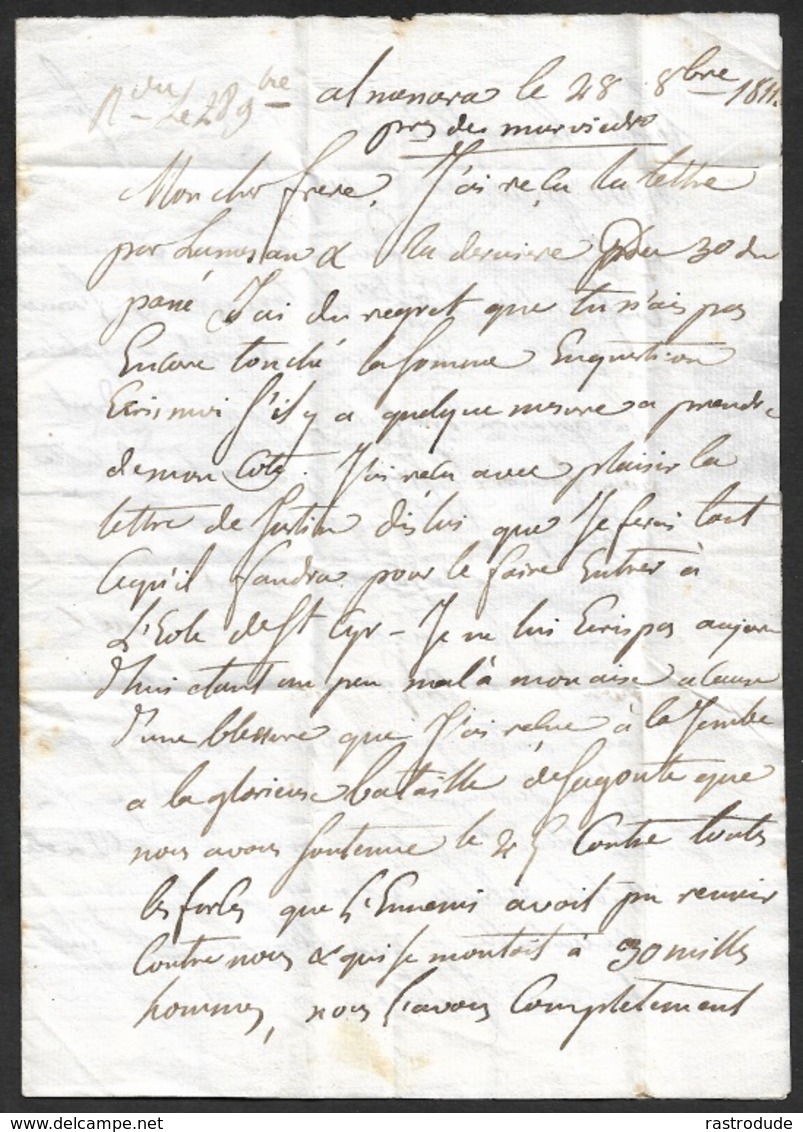 Rdu Le 28 9bre
almenara le 28 8bre 1811
pres de murviedro
Mon cher frere, J'ai reçu la lettre
par Lameran & la derniere du 30 du
passé J'ai du regret que tu n'ais pas
Encore touché la somme En question
Ecris moi s'il y a quelque mesure a prendre
de mon Coté. J'ai reçu avec plaisir la
lettre de Justin dis lui que Je ferai tout
Cequ'il faudra pour le faire Entrer à
L'Ecole de St Cyr - Je ne lui Ecris pas aujour
d'hui etant un peu mal à mon aise a cause
d'une blessure que J'ai reçue à la Jambe
a la glorieuse bataille de sagonte que
nous avons soutenue le 25 Contre toutes
les forces que L'Ennemi avoit pu reunir
Contre nous & qui se montoit à 30 milles
hommes, nous l'avons Completement
delcampe.net
rastrodude